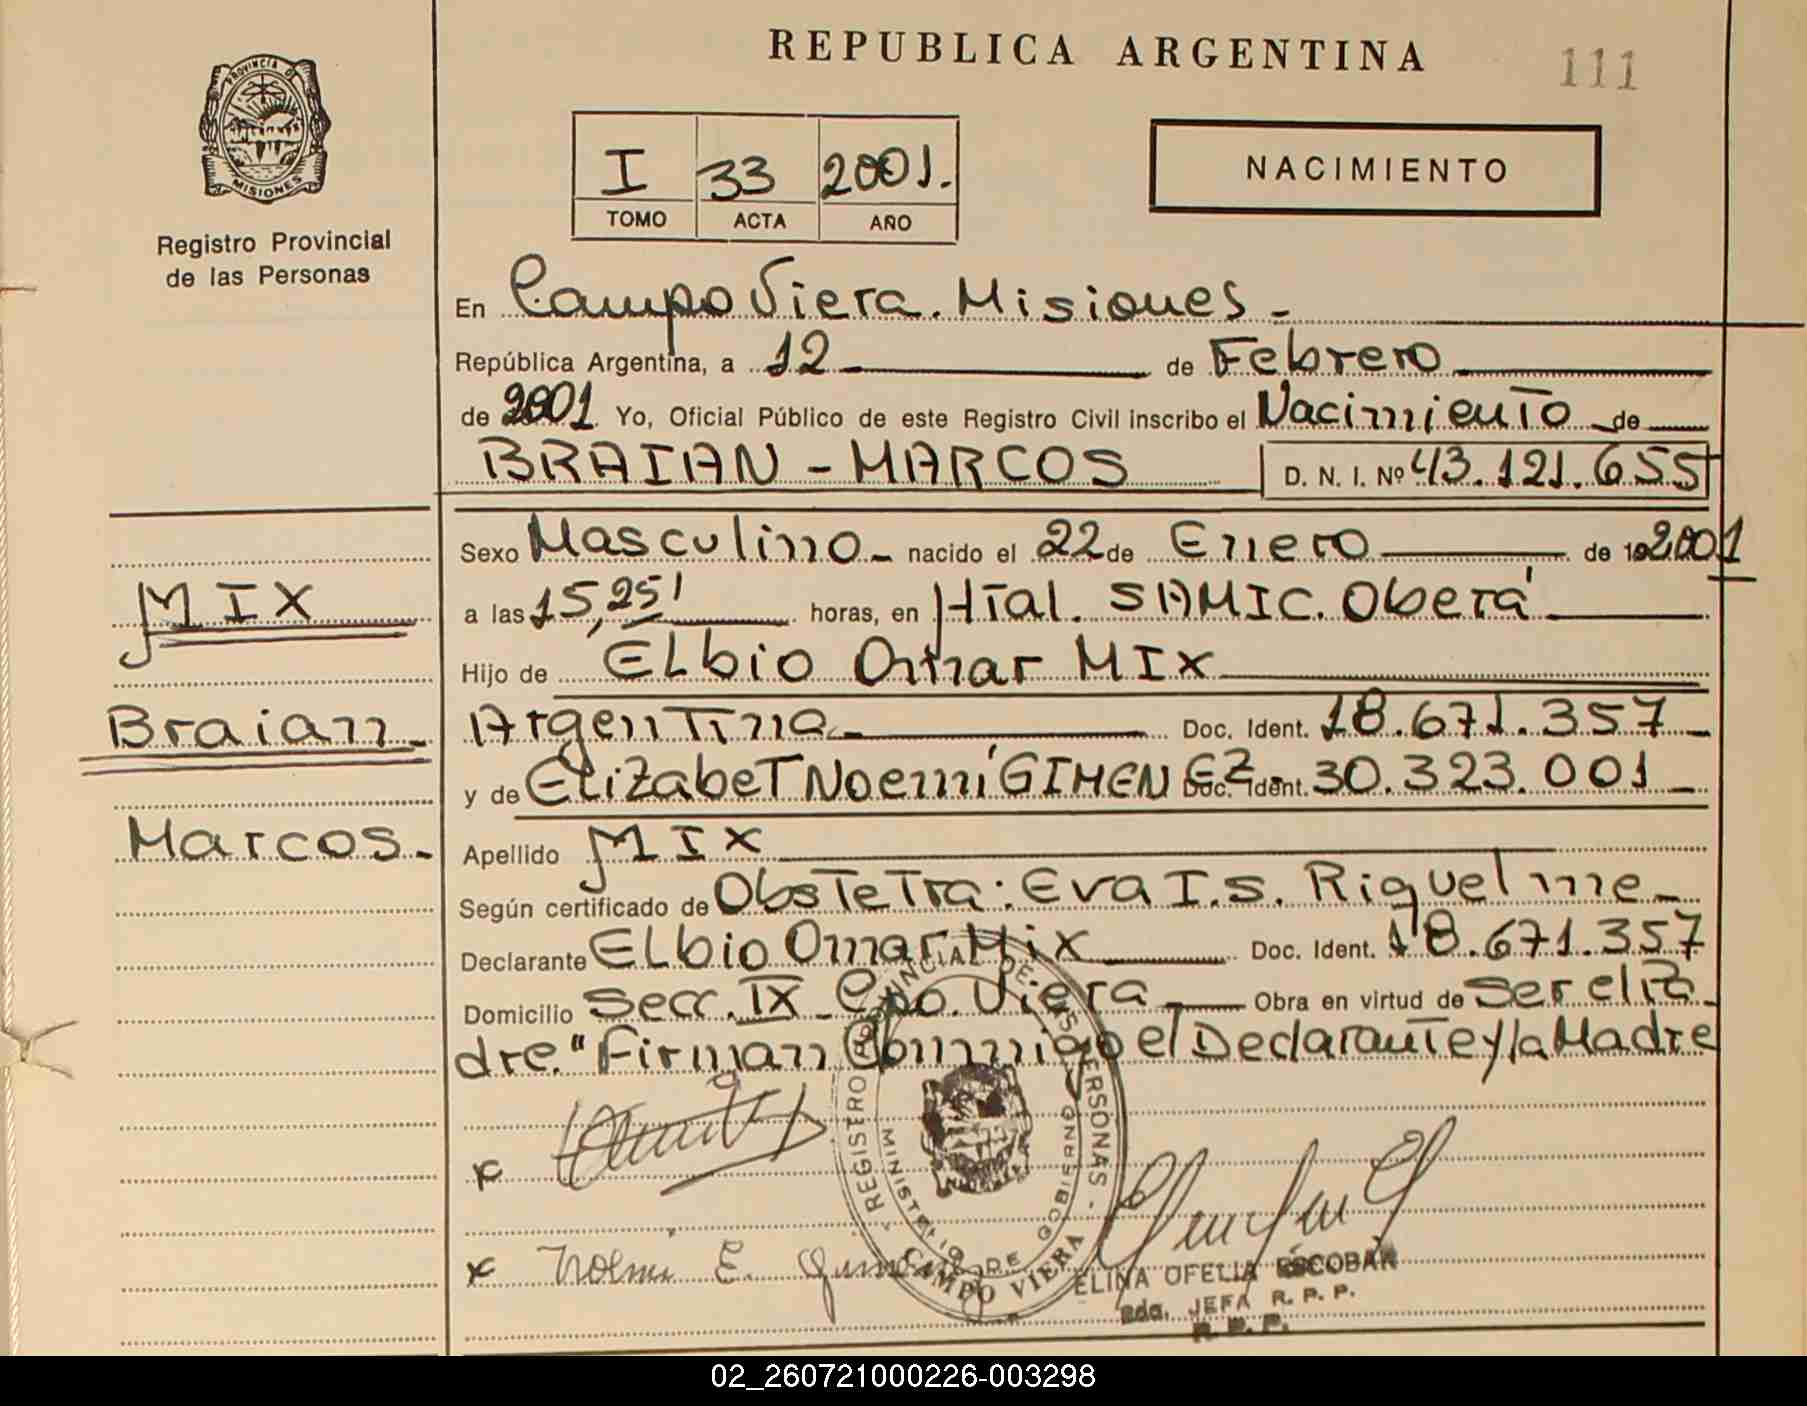 REPUBLICA ARGENTINA
111
PROVINCIA DE
MISIONES
Registro Provincial
de las Personas
I 33 2001.
TOMO ACTA AÑO
NACIMIENTO
En Campo Viera. Misiones -
República Argentina, a 12 de Febrero
de 2001. Yo, Oficial Público de este Registro Civil inscribo el Nacimiento de
BRAIAN - MARCOS D. N. I. Nº 43.121.655
Sexo Masculino - nacido el 22 de Enero de 2001
a las 15,25' horas, en HTal. SAMIC. Oberá
Hijo de ELbio Omar MIX
Argentina - Doc. Ident. 18.671.357
y de ELiZabeT Noemí GIMENEZ. Doc. Ident. 30.323.001
Apellido MIX
Según certificado de ObsTeTra: Eva I.S. Riquelme -
Declarante ELbio Omar Mix Doc. Ident. 18.671.357
Domicilio Secc. IX Cpo. Viera Obra en virtud de Ser el Pa
dre." Firman Conmigo el Declarante y la Madre
MIX
Braian -
Marcos -
REGISTRO PROVINCIAL DE LAS PERSONAS -
MINISTERIO DE GOBIERNO
CAMPO VIERA
x
x Nolmi E. Gimenez
ELINA OFELIA ESCOBAR
JEFA R. P. P.
R. P. P.
02_260721000226-003298